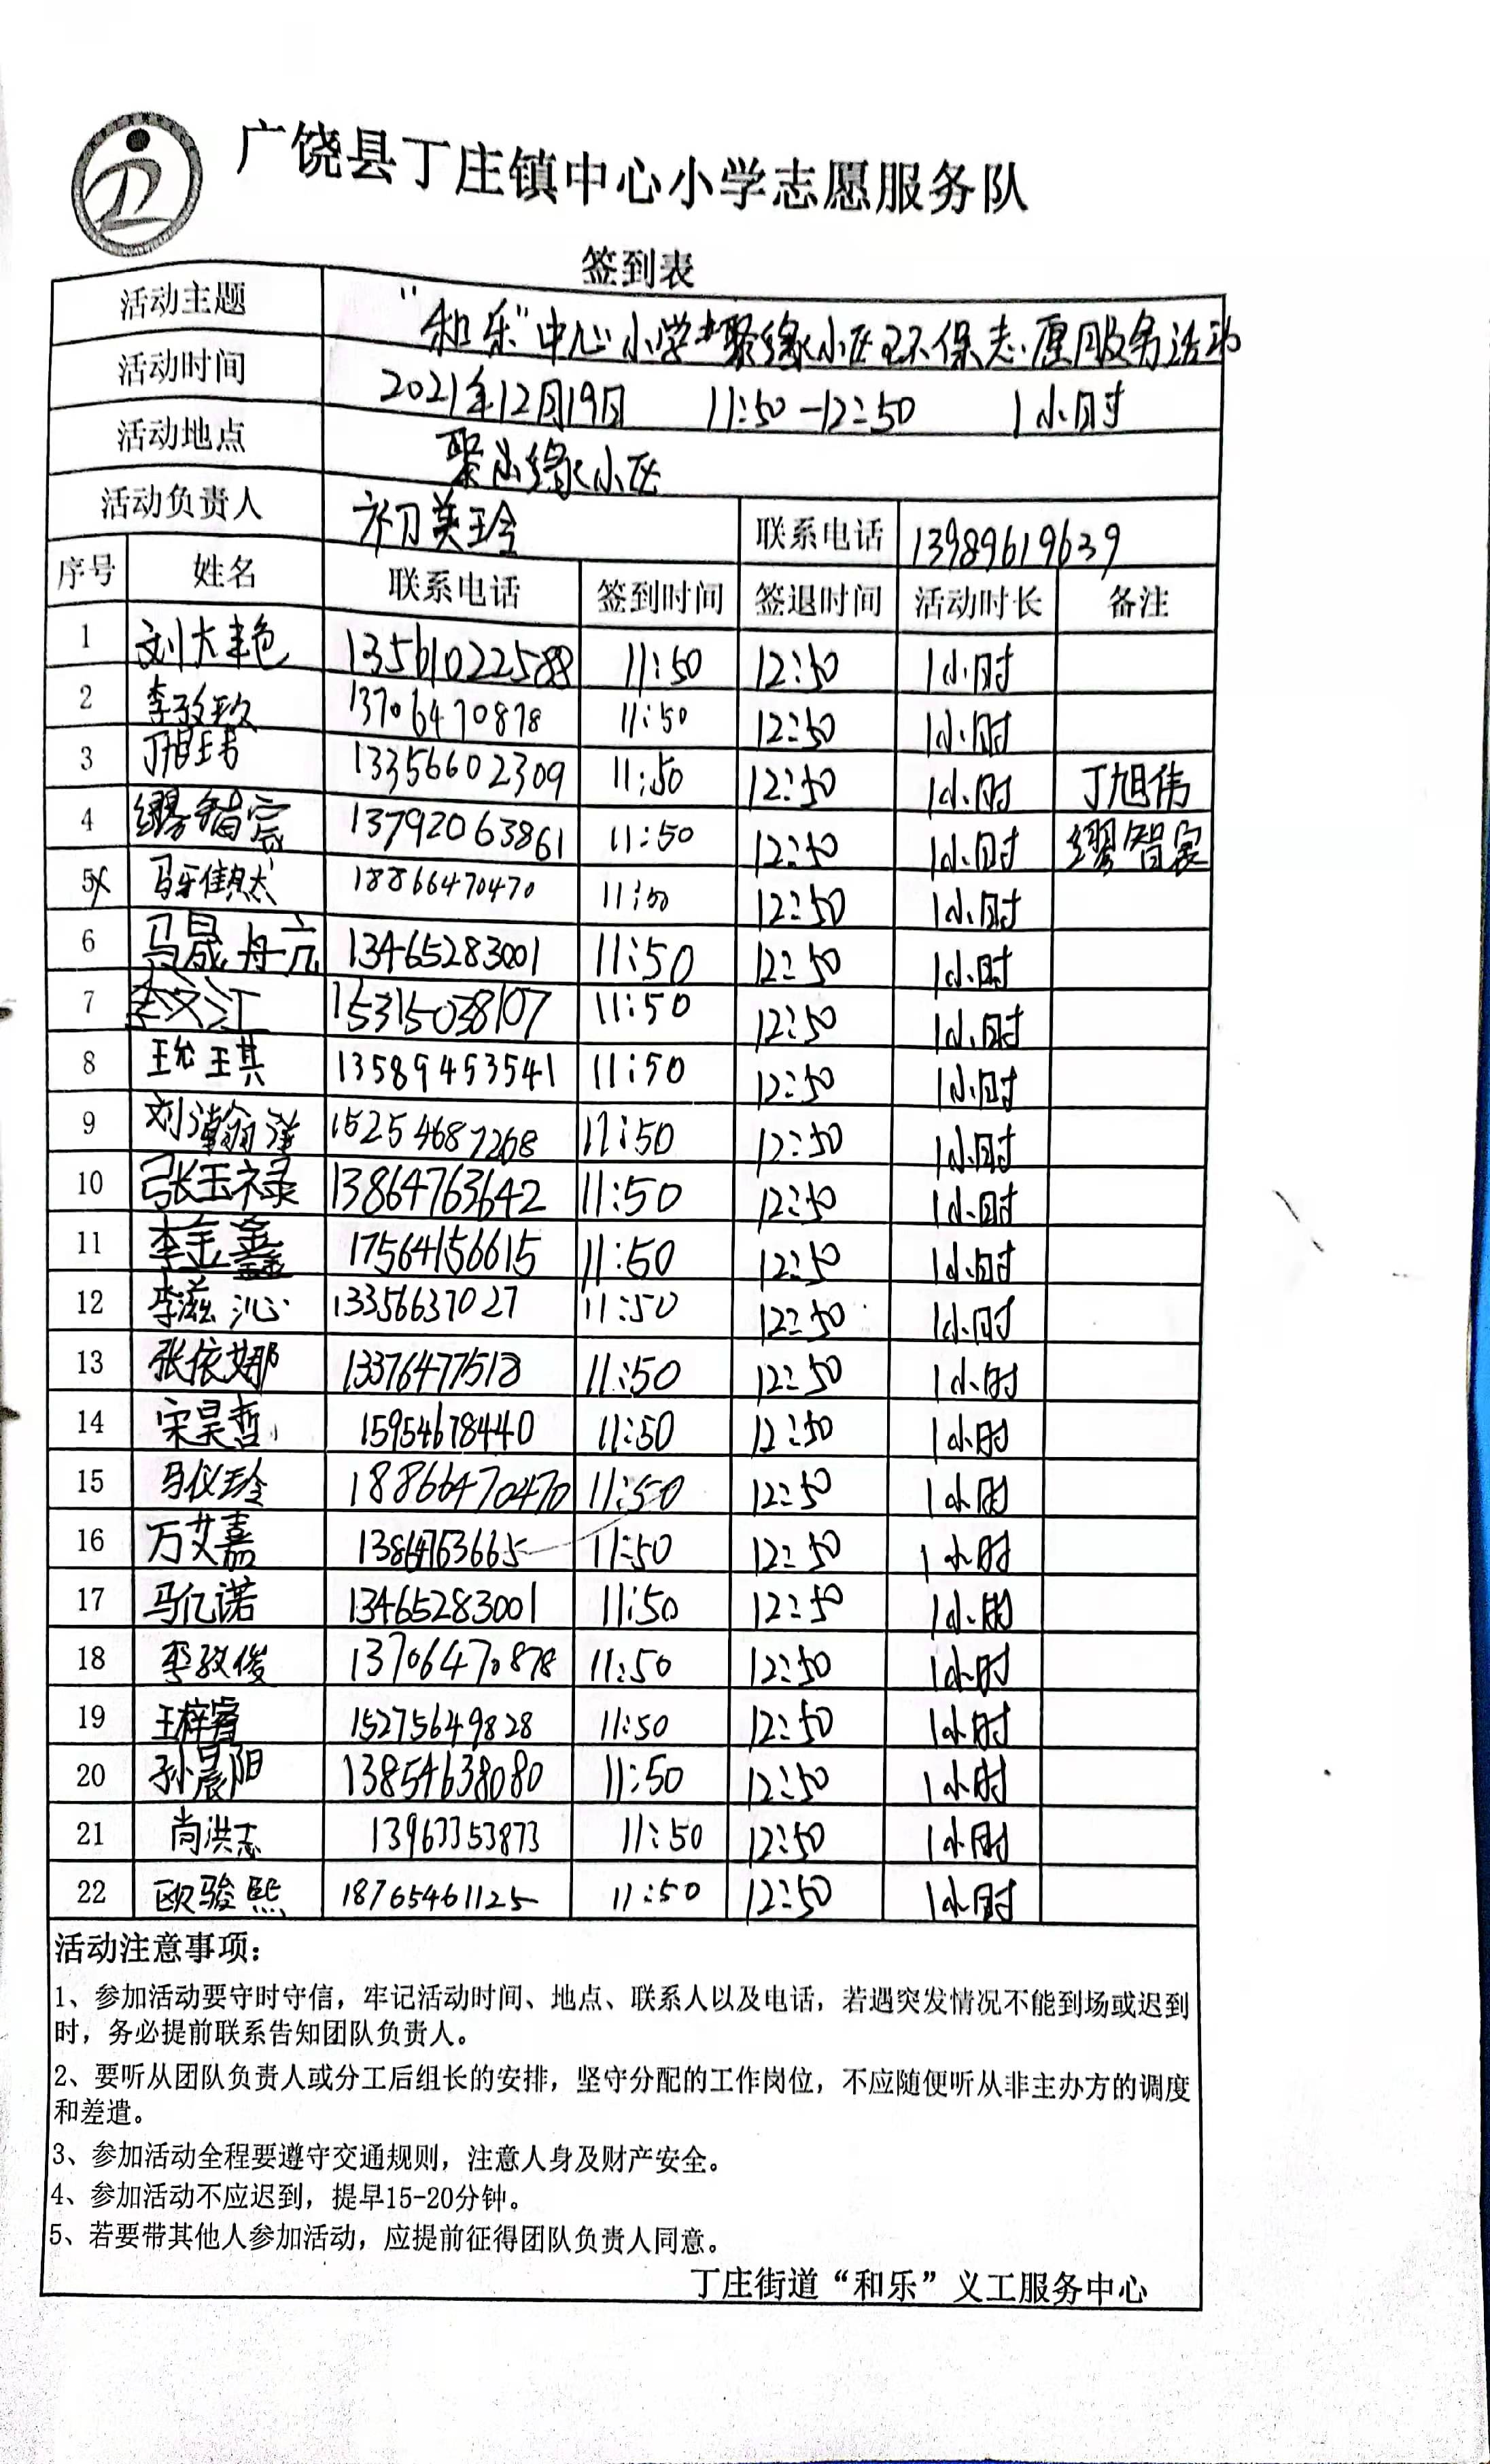 广饶县丁庄镇中心小学志愿服务队
签到表
活动主题 “和乐”中心小学聚缘小区环保志愿服务活动
活动时间 2021年12月19日 11:50-12:50 1小时
活动地点 聚尚缘小区
活动负责人 初美玲 联系电话 13989619639
序号 姓名 联系电话 签到时间 签退时间 活动时长 备注
1 刘大艳 13561022588 11:50 12:50 1小时
2 李孜玫 13706470878 11:50 12:50 1小时
3 丁旭玮 13356602309 11:50 12:50 1小时 丁旭伟
4 缪智宸 13792063861 11:50 12:50 1小时 缪智宸
5 马佳然 18866470470 11:50 12:50 1小时
6 马晟舟 13465283001 11:50 12:50 1小时
7 李文江 15315038107 11:50 12:50 1小时
8 王怡琪 13589453541 11:50 12:50 1小时
9 刘瀚洋 15254687268 11:50 12:50 1小时
10 张玉禄 13864763642 11:50 12:50 1小时
11 李金鑫 17564156615 11:50 12:50 1小时
12 李滋沁 13356637027 11:50 12:50 1小时
13 张依娜 13376477518 11:50 12:50 1小时
14 宋昊哲 15954678440 11:50 12:50 1小时
15 马仪玲 18866470470 11:50 12:50 1小时
16 万艾嘉 13864763665 11:50 12:50 1小时
17 马亿诺 13465283001 11:50 12:50 1小时
18 李孜俊 13706470878 11:50 12:50 1小时
19 王梓睿 15275649828 11:50 12:50 1小时
20 孙晨阳 13854638080 11:50 12:50 1小时
21 尚洪志 13963353873 11:50 12:50 1小时
22 欧骏熙 18765461125 11:50 12:50 1小时
活动注意事项：
1、参加活动要守时守信，牢记活动时间、地点、联系人以及电话，若遇突发情况不能到场或迟到
时，务必提前联系告知团队负责人。
2、要听从团队负责人或分工后组长的安排，坚守分配的工作岗位，不应随便听从非主办方的调度
和差遣。
3、参加活动全程要遵守交通规则，注意人身及财产安全。
4、参加活动不应迟到，提早15-20分钟。
5、若要带其他人参加活动，应提前征得团队负责人同意。
丁庄街道“和乐”义工服务中心